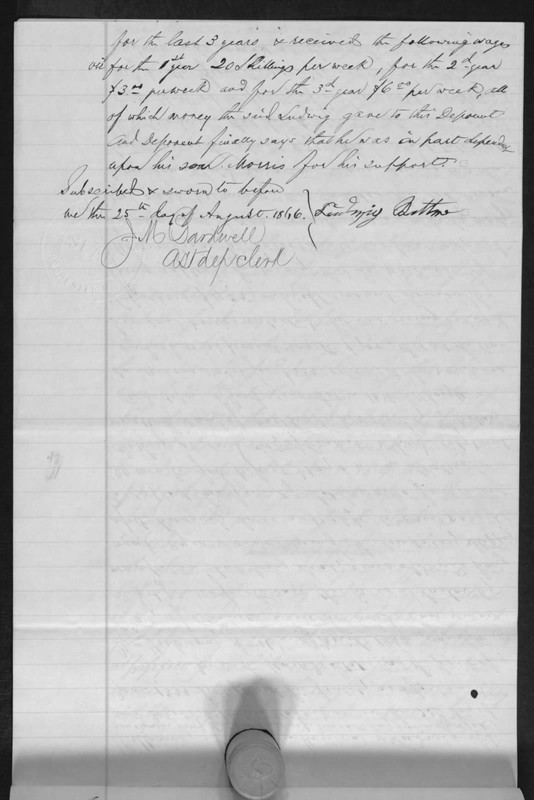 for the last 3 years & received the following wages
viz for the 1st year 20 shillings per week, for the 2d year
$3.00 per week and for the 3d year $6.00 per week, all
of which money the said Ludwig gave to this Deponent
And Deponent finally says that he was in part dependent
upon his son Morris for his support.
Subscribed & sworn to before
me this 25th day of August. 1866. Ludwig
J M Bardwell
Ast dep clerk